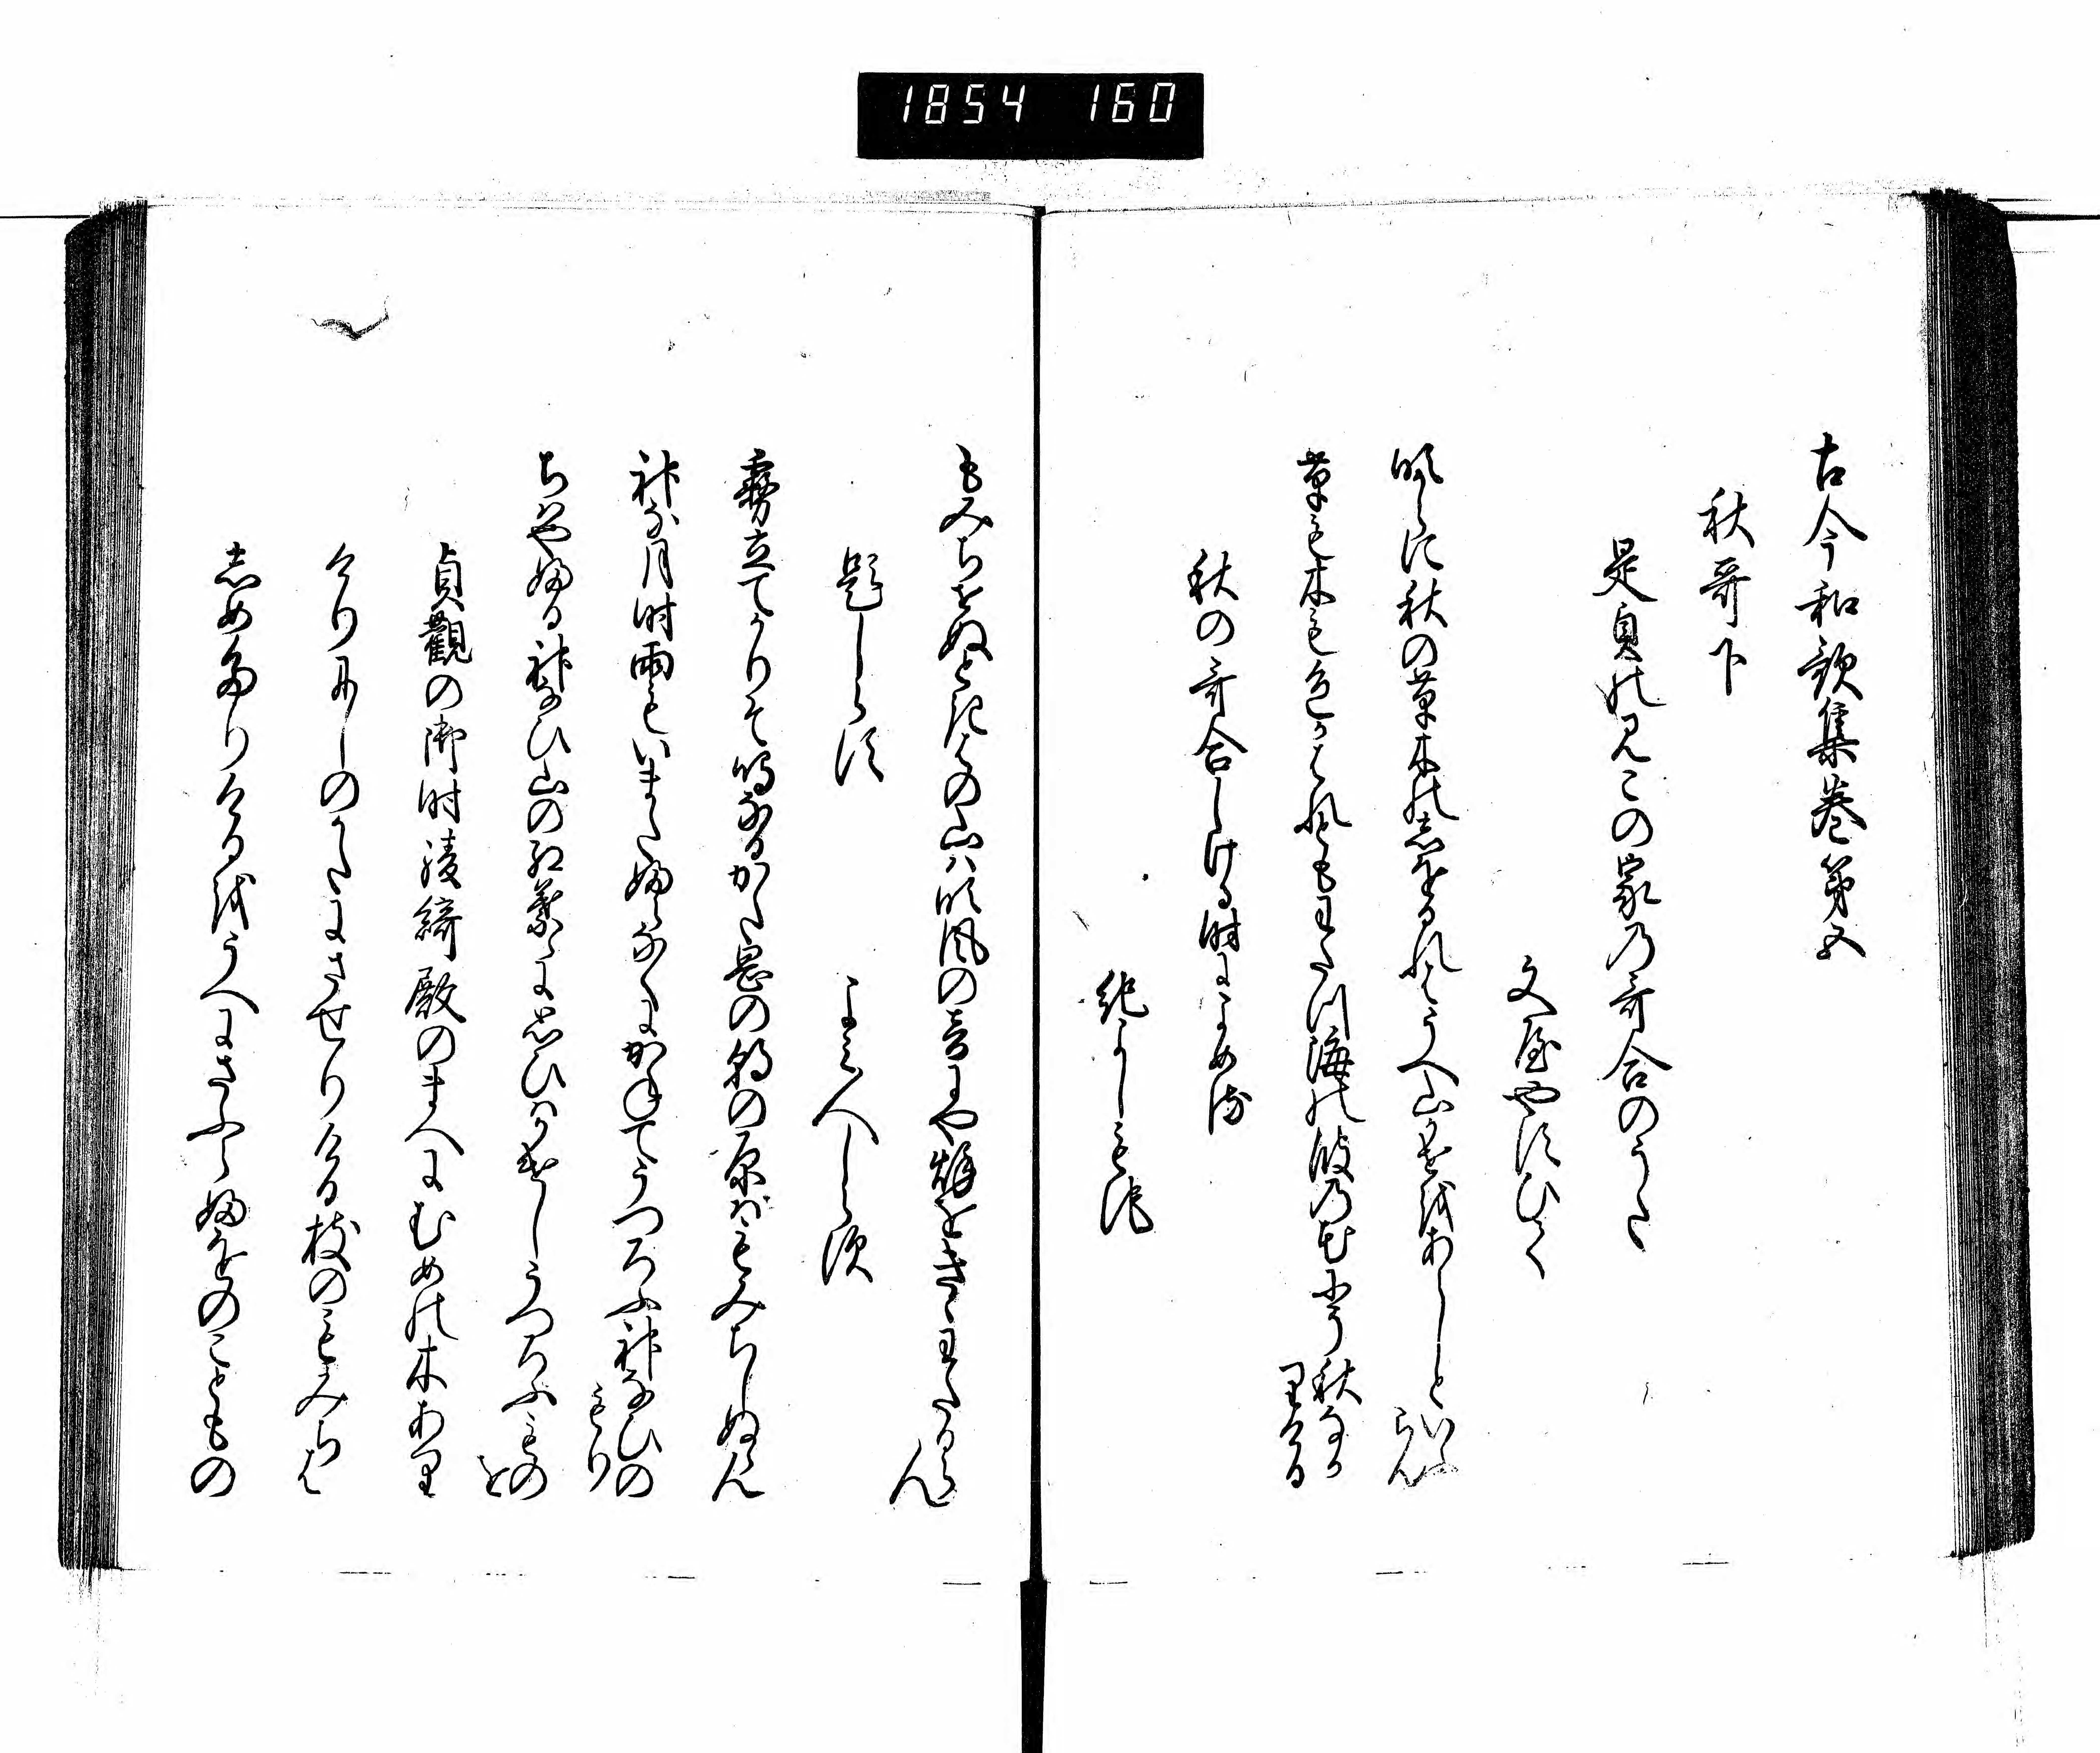 1854 160
古今和歌集巻第五
秋哥下
是貞のみこの家乃哥合のうた
文屋やすひて
吹からに秋の草木のしほるれはうへ山かせをあらしといふらん
草も木も色かはれともわたつ海の波乃花にそ秋なかりける
秋の哥合しける時によめる
紀よしもち
もみちせぬときはの山は吹風の音にや秋をきゝわたるらん
題しらす
よみ人しらす
霧立てかりそ鳴なるかた岡の朝の原はもみちしぬらん
神な月時雨もいまたふらなくにかねてうつろふ神なひのもり
ちはやふる神なひ山の紅葉はに思ひはかけしうつろふものを
貞観の御時綾綺殿のまへにむめの木あり
けりにしのかたにさせりける枝のもみちは
しめたりけるをうへにさふらふをのこともの